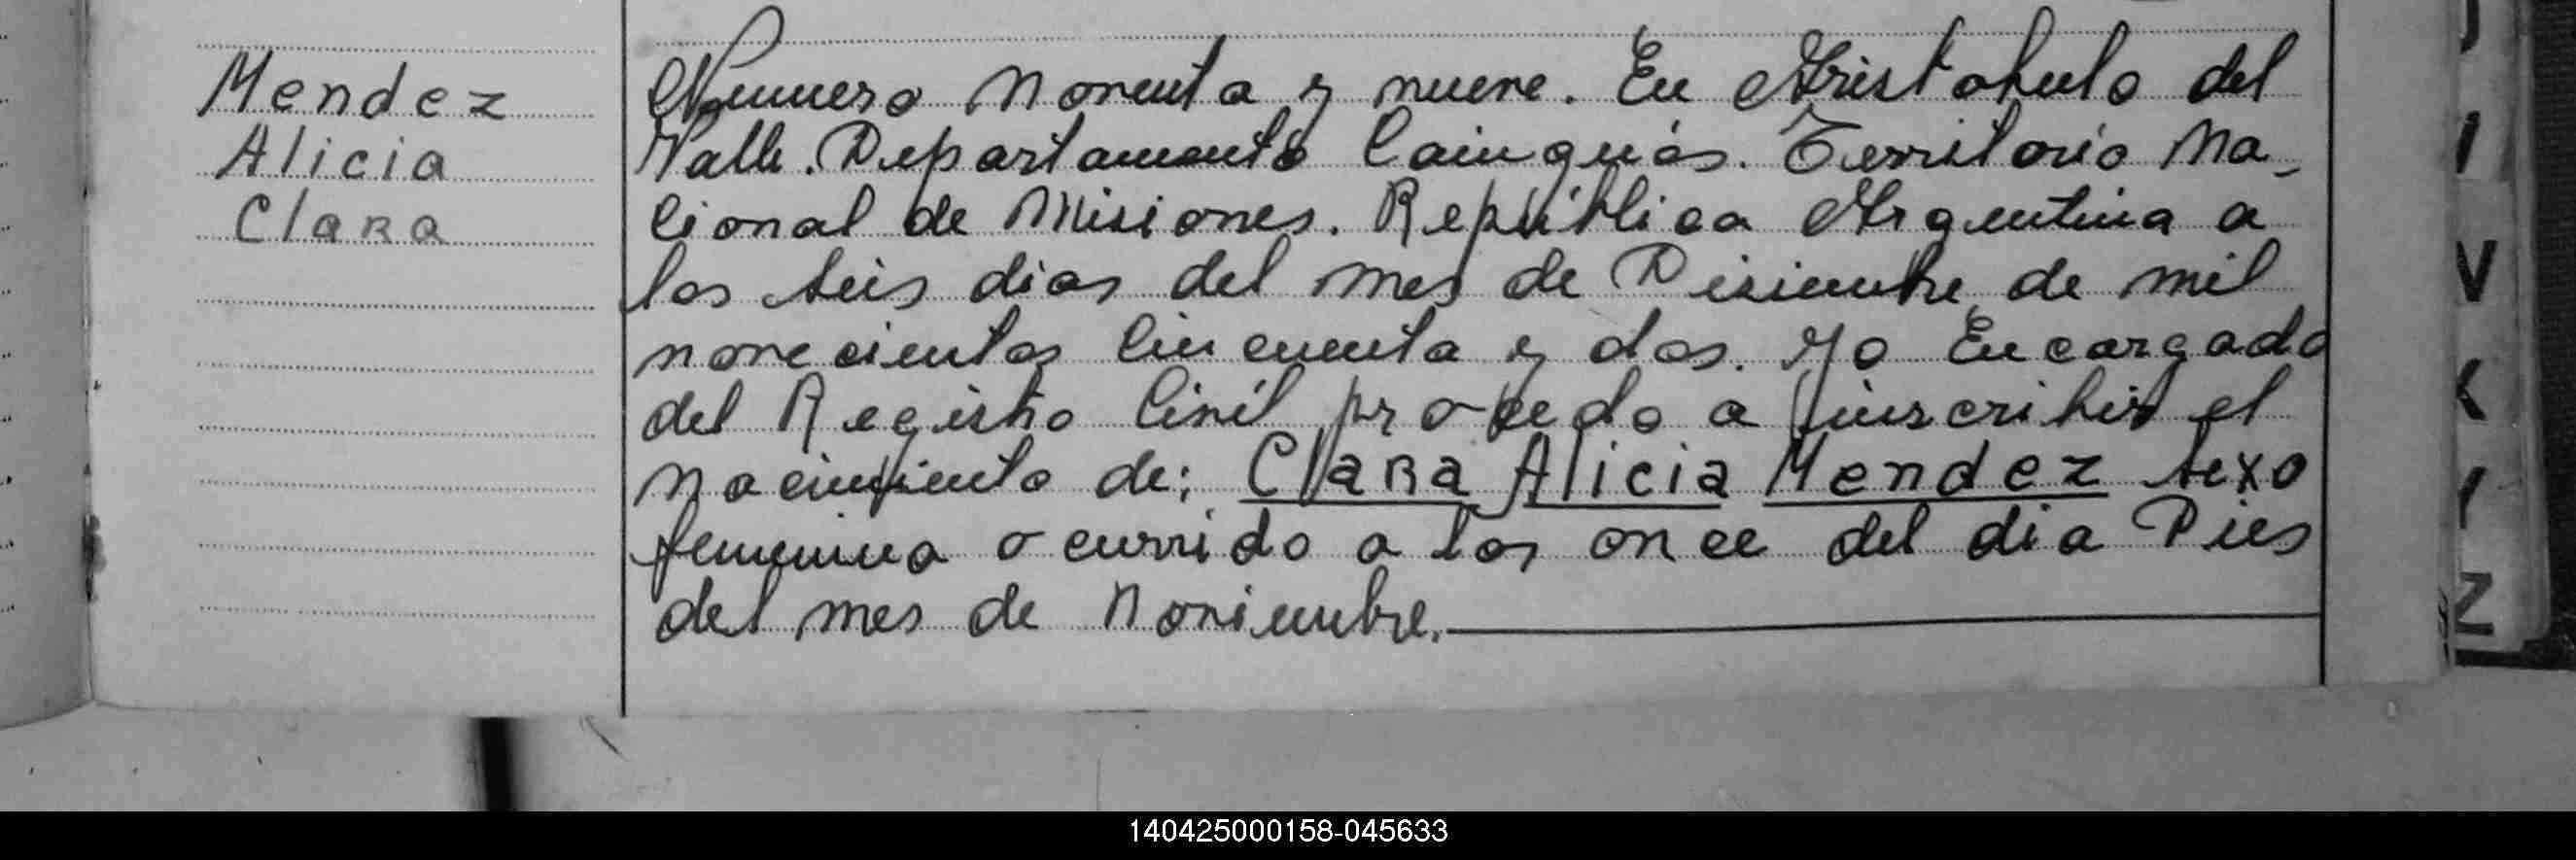 Mendez
Alicia
Clara
Numero Noventa y nueve. En Aristobulo del
Valle. Departamento Cainguás. Territorio Na-
cional de Misiones. República Argentina a
los seis dias del mes de Disiembre de mil
novecientos cincuenta y dos. Yo Encargado
del Registro Civil procedo a inscribir el
nacimiento de: Clara Alicia Mendez sexo
femenino ocurrido a las once del dia Dies
del mes de Noviembre.
J
I
V
K
Y
Z
140425000158-045633